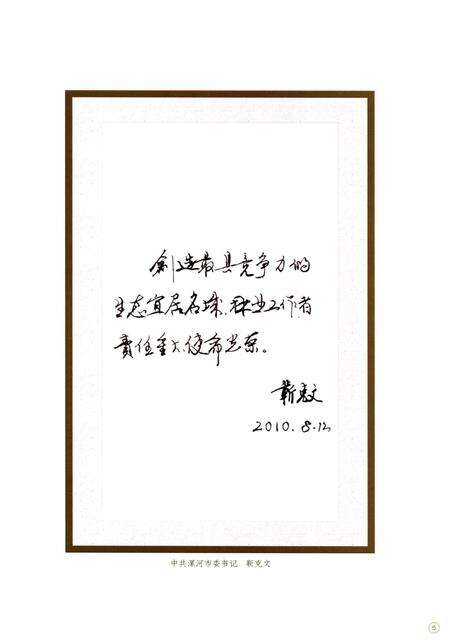 创造最具竞争力的
生态宜居名城，林业工作者
责任重大，使命光荣。
靳克文
2010.8.12
中共漯河市委书记 靳克文
5